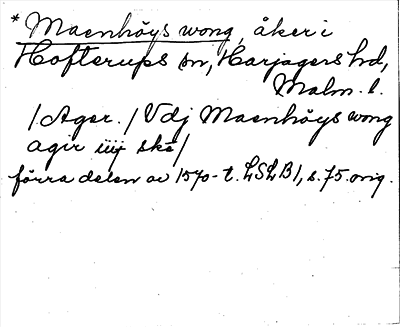 * Maenhöys wong, åker i
Hofterups sn, Harjagers hd,
Malm. l.
/Ager./ Vdj Maenhöys wong
agir iiij ske/
förra delen av 1570-t. LSLB1, s. 75. orig.